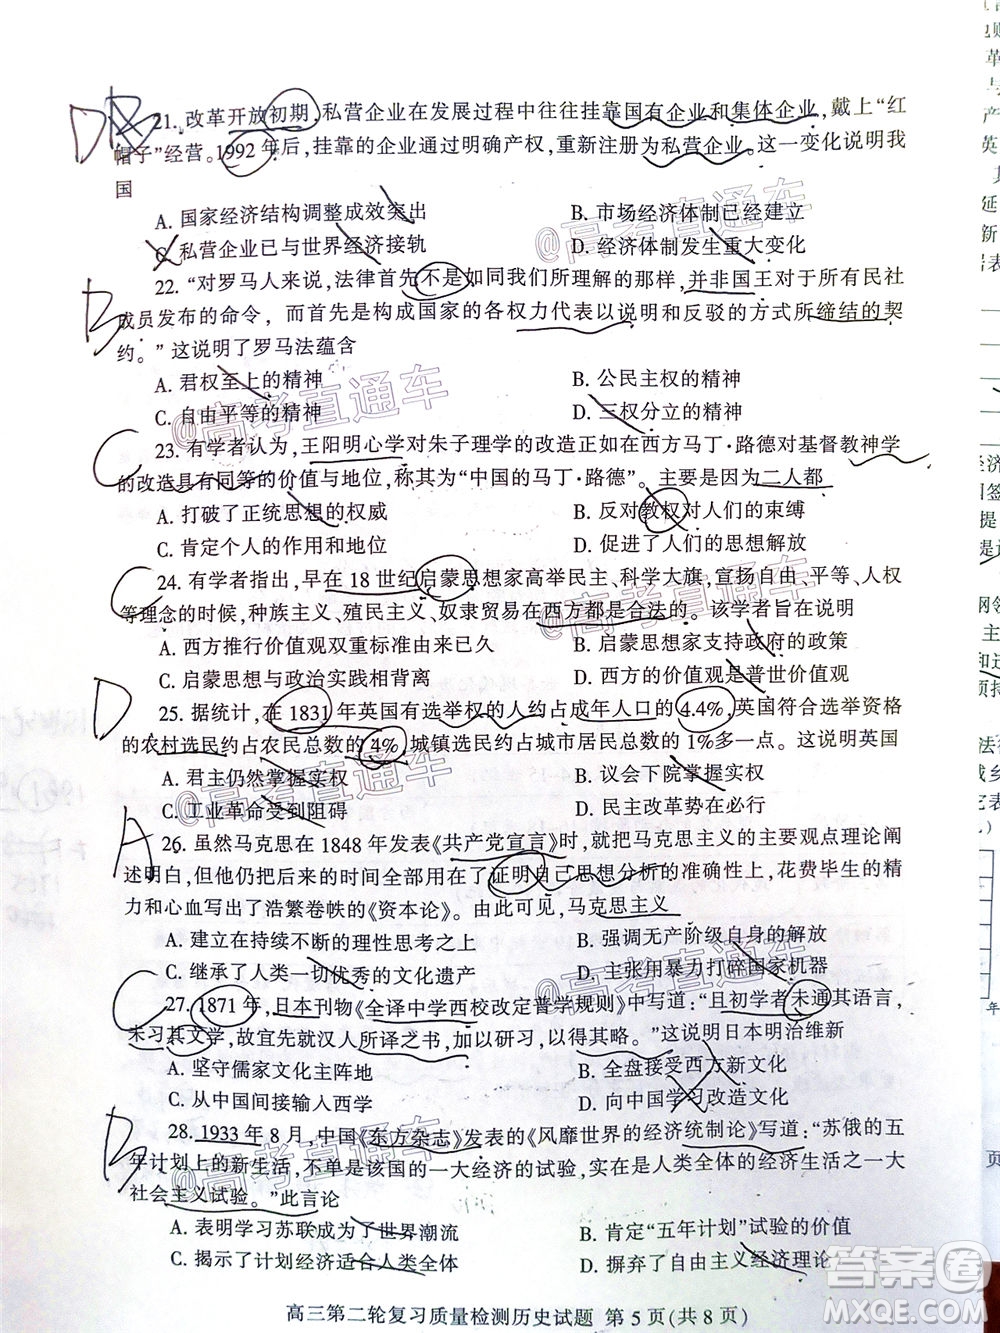 D B
21. 改革开放初期, 私营企业在发展过程中往往挂靠国有企业和集体企业, 戴上“红
帽子”经营。1992 年后, 挂靠的企业通过明确产权, 重新注册为私营企业。这一变化说明我
国
A. 国家经济结构调整成效突出 B. 市场经济体制已经建立
C. 私营企业已与世界经济接轨 D. 经济体制发生重大变化
B
22. “对罗马人来说, 法律首先不是如同我们所理解的那样, 并非国王对于所有民社
成员发布的命令, 而首先是构成国家的各权力代表以说明和反驳的方式所缔结的契
约。”这说明了罗马法蕴含
A. 君权至上的精神 B. 公民主权的精神
C. 自由平等的精神 D. 三权分立的精神
C
23. 有学者认为, 王阳明心学对朱子理学的改造正如在西方马丁·路德对基督教神学
的改造具有同等的价值与地位, 称其为“中国的马丁·路德”。主要是因为二人都
A. 打破了正统思想的权威 B. 反对教权对人们的束缚
C. 肯定个人的作用和地位 D. 促进了人们的思想解放
C
24. 有学者指出, 早在 18 世纪启蒙思想家高举民主、科学大旗, 宣扬自由、平等、人权
等理念的时候, 种族主义、殖民主义、奴隶贸易在西方都是合法的。该学者旨在说明
A. 西方价值观双重标准由来已久 B. 启蒙思想家支持政府的政策
C. 启蒙思想与政治实践相背离 D. 西方的价值观是普世价值观
D
25. 据统计, 在 1831 年英国有选举权的人约占成年人口的 4.4%, 英国符合选举资格
的农村选民约占农民总数的 4%, 城镇选民约占城市居民总数的 1%多一点。这说明英国
A. 君主仍然掌握实权 B. 议会下院掌握实权
C. 工业革命受到阻碍 D. 民主改革势在必行
A
26. 虽然马克思在 1848 年发表《共产党宣言》时, 就把马克思主义的主要观点理论阐
述明白, 但他仍把后来的时间全部用在了证明自己思想分析的准确性上, 花费毕生的精
力和心血写出了浩繁卷帙的《资本论》。由此可见, 马克思主义
A. 建立在持续不断的理性思考之上 B. 强调无产阶级自身的解放
C. 继承了人类一切优秀的文化遗产 D. 主张用暴力打碎国家机器
C
27. 1871 年, 日本刊物《全译中学西校改定普学规则》中写道: “且初学者未通其语言,
未习其文学, 故宜先就汉人所译之书, 加以研习, 以得其略。”这说明日本明治维新
A. 坚守儒家文化主阵地 B. 全盘接受西方新文化
C. 从中国间接输入西学 D. 向中国学习改造文化
B
28. 1933 年 8 月, 中国《东方杂志》发表的《风靡世界的经济统制论》写道: “苏俄的五
年计划上的新生活, 不单是该国的一大经济的试验, 实在是人类全体的经济生活之一大
社会主义试验。”此言论
A. 表明学习苏联成为了世界潮流 B. 肯定“五年计划”试验的价值
C. 揭示了计划经济适合人类全体 D. 摒弃了自由主义经济理论
高三第二轮复习质量检测历史试题 第 5 页(共 8 页)
@高考直通车
答案圈
MXQE.COM